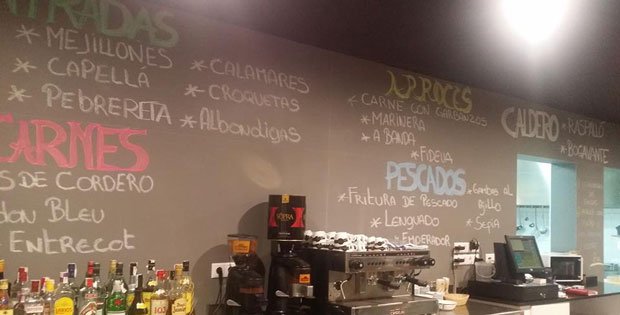 ENTRADAS
* MEJILLONES
* CAPELLA
* PEBRERETA
* CALAMARES
* CROQUETAS
* Albondigas
CARNES
DE CORDERO
BLEU
ENTRECOT
ARROCES
* CARNE CON GARBANZOS
* MARINERA
* A BANDA
* FIDEUA
PESCADOS
* FRITURA DE PESCADO
* LENGUADO
* EMPERADOR
* GAMBAS AL
AJILLO
* SEPIA
CALDERO
* RASPALLO
* BOGAVANTE